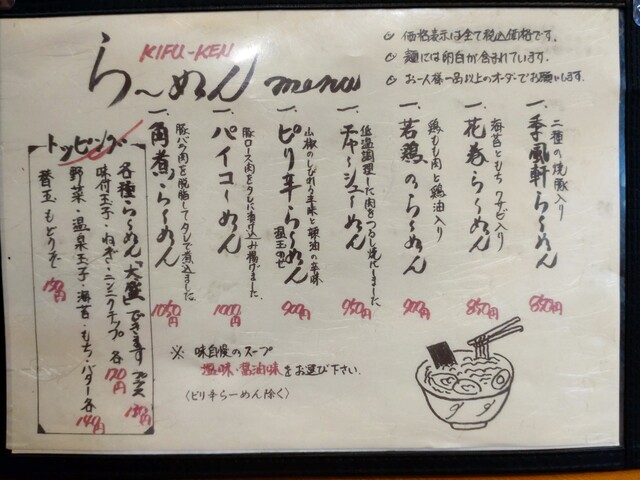 KIFU-KEN
ら〜めん menu
価格表示は全て税込価格です。
麺には卵白が含まれています。
お一人様一品以上のオーダーでお願いします。
二種の焼豚入り
一、季風軒ら〜めん 850円
海苔ともち ワサビ入り
一、花巻ら〜めん 850円
鶏もも肉と鶏油入り
一、若鶏のら〜めん 900円
低温調理した肉をつるし焼にしました
一、チャーシューめん 950円
山椒のしびれる辛味と辣油の辛味
一、ピリ辛ら〜めん 温玉のせ 900円
豚ロース肉をタレに漬け込み揚げました
一、パイコーめん 1000円
豚バラ肉を脱脂してタレで煮込ました
一、角煮ら〜めん 1050円
トッピング
各種ら〜めん「大盛」できます プラス
味付玉子・ねぎ・ニンニクチップ 各 120円
野菜・温泉玉子・海苔・もち・バター 各 140円
替玉 もどうぞ 150円
※ 味自慢のスープ
塩味・醤油味をお選び下さい。
(ピリ辛ら〜めん除く)